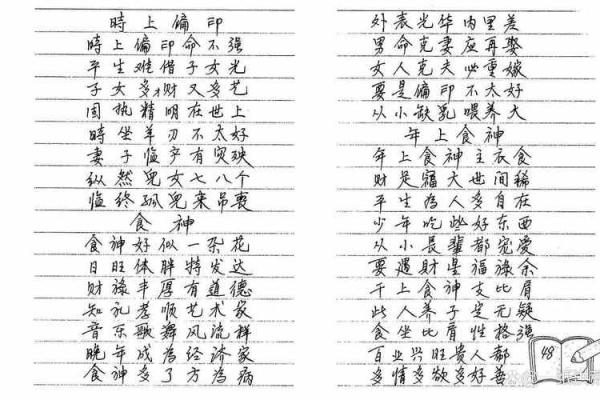 時上偏印
時上偏印命不强
平生难借子女光
子女多才财又多艺
固执精明在世上
時坐羊刃不太好
妻子临产有灾殃
纵然兒女七八个
临终孤兒来吊丧
食神
食神好似一朵花
日旺体胖特发达
财禄丰厚有道德
知礼孝顺艺术家
音乐歌舞风流样
晚年成為经济家
食神多了方為病
外表光华内里差
男命克妻应再娶
女人克夫必重嫁
要是偏印不太好
从小缺乳喂养大
年上食神
年上食神主衣食
财足福大世间稀
平生為人多自在
少年吃些好东西
从小長輩都宠爱
要遇財星福禄余
干上食神支比肩
此人养子定无疑
食坐比肩性格强
百业兴旺贵人都
多情多欲多好善
48